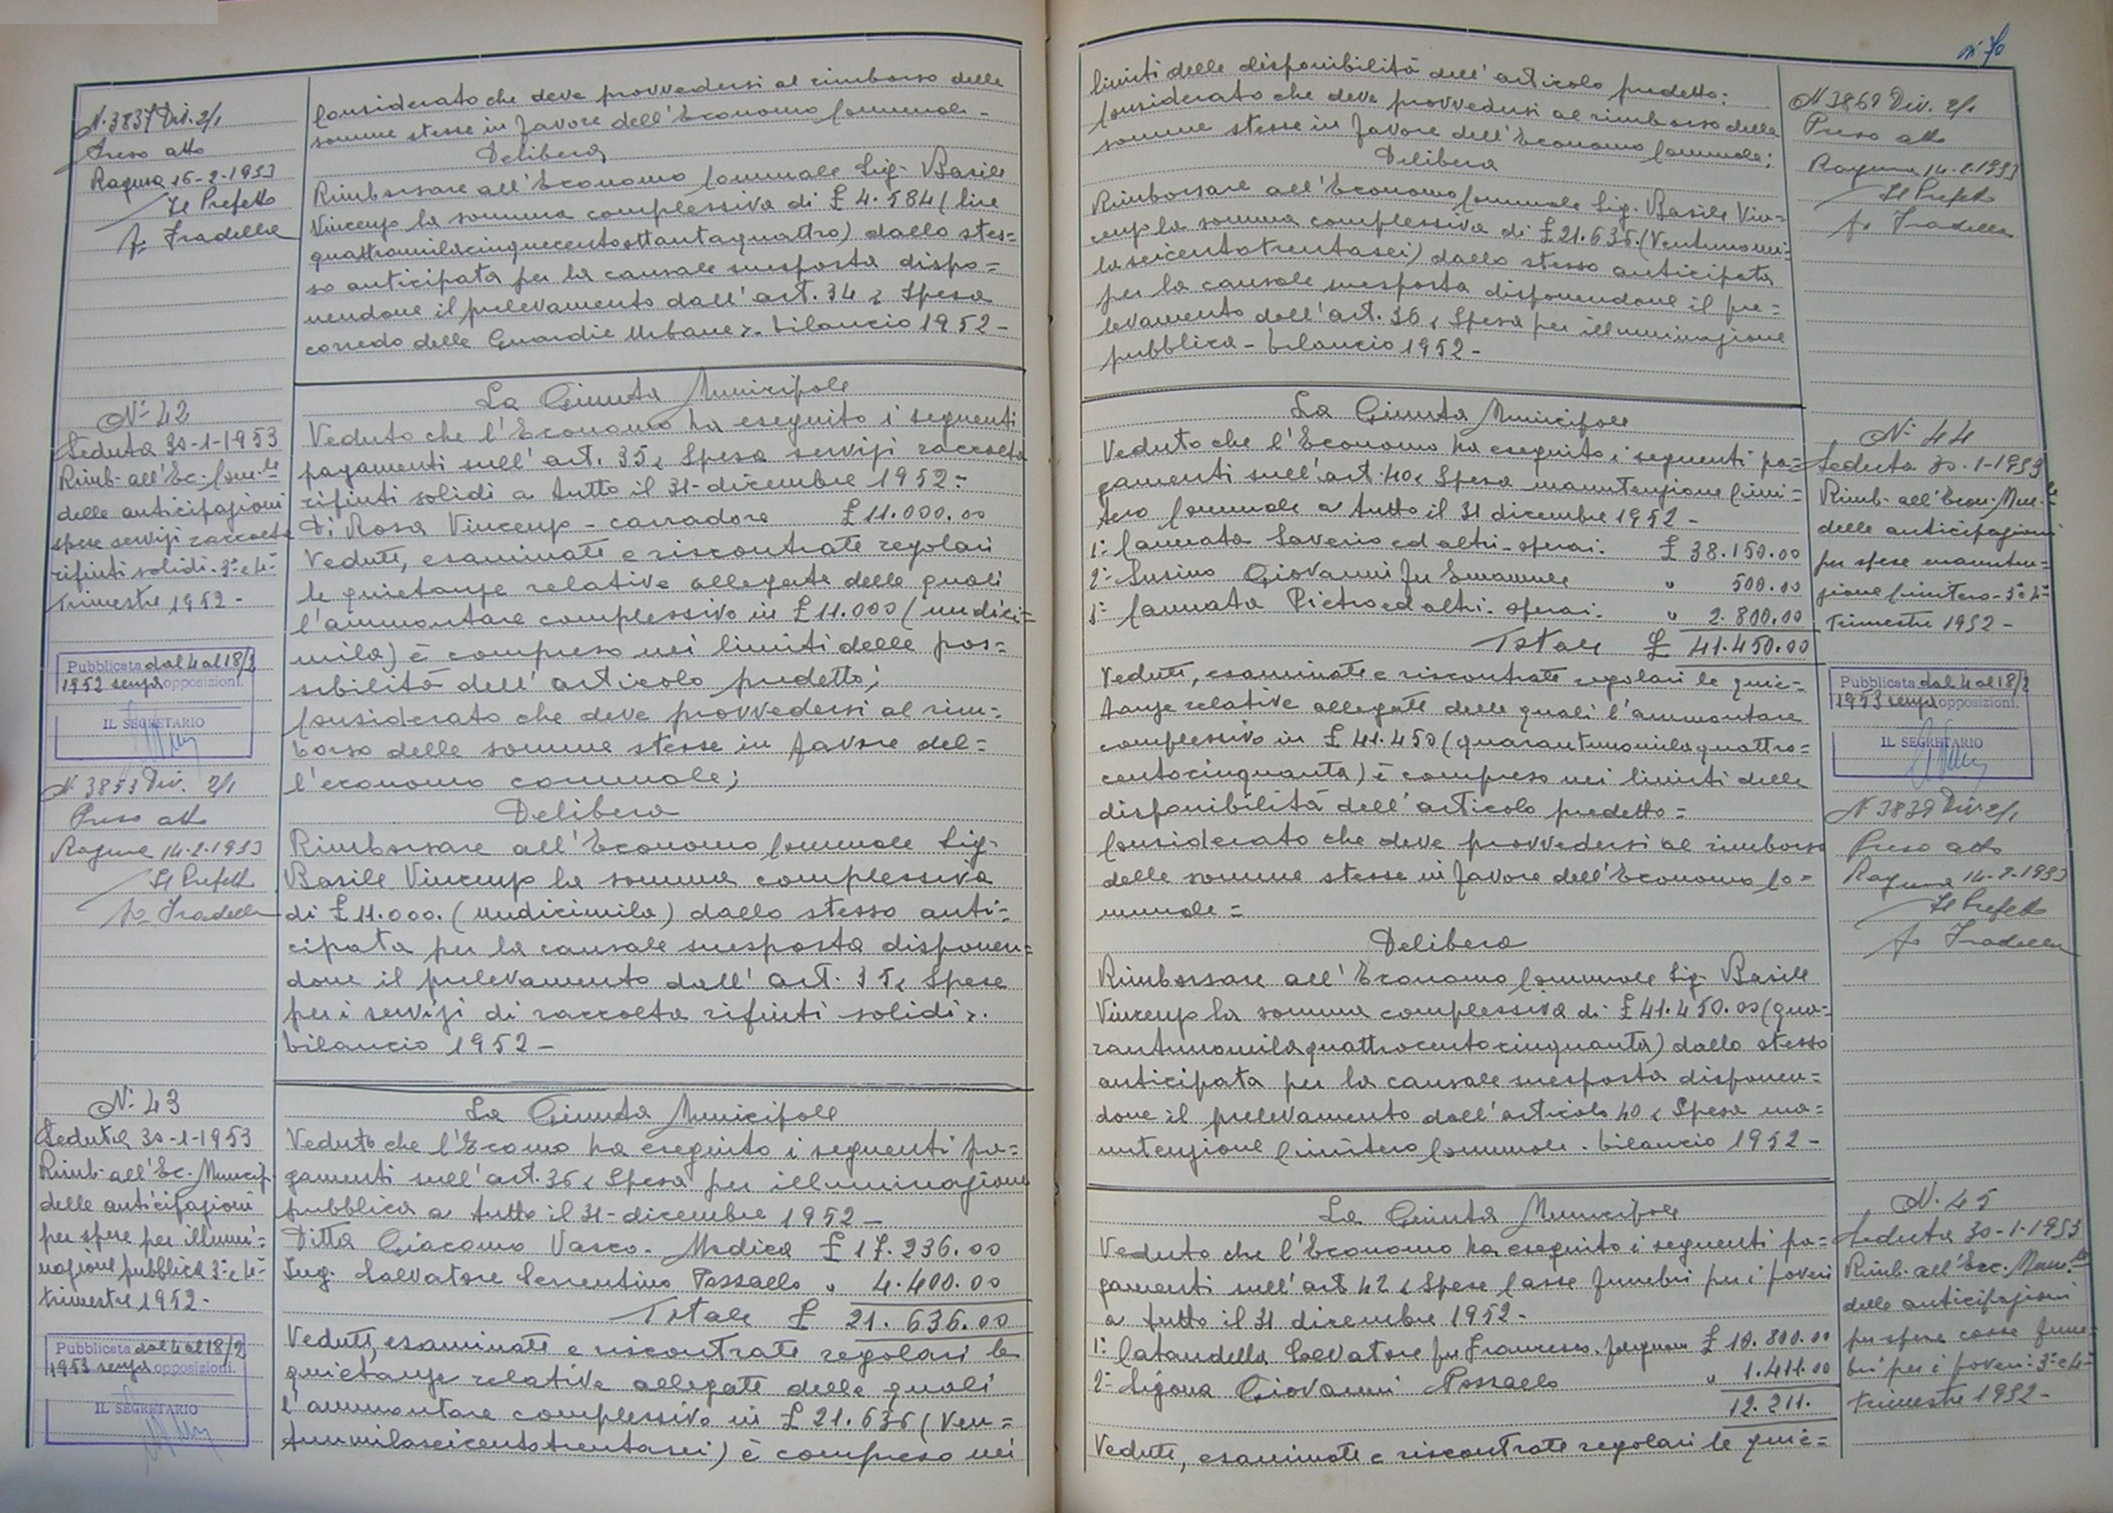 N. 3837 Div. 2/1
Preso atto
Ragusa 16-2-1953
Il Prefetto
fo Tradella
Considerato che deve provvedersi al rimborso delle
somme stesse in favore dell'Economo Comunale -
Delibera
Rimborsare all'Economo Comunale Sig. Basile
Vincenzo la somma complessiva di £ 4.584 (lire
quattromilacinquecentottantaquattro) dallo stes=
so anticipata per la causale suesposta dispo=
nendone il prelevamento dall'art. 34 « Spesa
corredo delle Guardie Urbane ». bilancio 1952 -
N. 42
Seduta 30-1-1953
Rimb. all'Ec. Com.le
delle anticipazioni
spese servizi raccolta
rifiuti solidi - 3° e 4°
trimestre 1952 -
Pubblicata dal 4 al 18/2
1952 senza opposizioni.
IL SEGRETARIO
N. 3853 Div. 2/1
Preso atto
Ragusa 14-2-1953
Il Prefetto
fo Tradella
La Giunta Municipale
Veduto che l'Economo ha eseguito i seguenti
pagamenti sull'art. 35 « Spesa servizi raccolta
rifiuti solidi a tutto il 31-dicembre 1952 =
Di Rosa Vincenzo - carradore £ 11.000.00
Vedute, esaminate e riscontrate regolari
le quietanze relative allegate delle quali
l'ammontare complessivo in £ 11.000 (undici=
mila) è compreso nei limiti delle pos=
sibilità dell'articolo predetto;
Considerato che deve provvedersi al rim=
borso delle somme stesse in favore del=
l'economo comunale;
Delibera
Rimborsare all'Economo Comunale Sig.
Basile Vincenzo la somma complessiva
di £ 11.000. (undicimila) dallo stesso anti=
cipata per la causale suesposta disponen=
done il prelevamento dall'art. 35 « Spese
per i servizi di raccolta rifiuti solidi ».
bilancio 1952 -
N. 43
Seduta 30-1-1953
Rimb. all'Ec. Municip.
delle anticipazioni
per spese per illumi=
nazione pubblica 3° e 4°
trimestre 1952 -
Pubblicata dal 4 al 18/2
1953 senza opposizioni.
IL SEGRETARIO
La Giunta Municipale
Veduto che l'Ecomo ha eseguito i seguenti pa=
gamenti sull'art. 36 « Spesa per illuminazione
pubblica a tutto il 31-dicembre 1952 -
Ditta Giacomo Vasco - Modica £ 17.236.00
Ing. Salvatore Serrentino Pozzallo " 4.400.00
Totale £ 21.636.00
Vedute, esaminate e riscontrate regolari le
quietanze relative allegate delle quali
l'ammontare complessivo in £ 21.636 (Ven=
tunmilaseicentotrentasei) è compreso nei
N. 70
limiti delle disponibilità dell'articolo predetto:
Considerato che deve provvedersi al rimborso delle
somme stesse in favore dell'Economo Comunale;
Delibera
Rimborsare all'Economo Comunale Sig. Basile Vin=
cenzo la somma complessiva di £ 21.636. (Ventunomi=
laseicentotrentasei) dallo stesso anticipata
per la causale suesposta disponendone il pre=
levamento dall'art. 36 « Spesa per illuminazione
pubblica - bilancio 1952 -
N 3869 Div. 2/1
Preso atto
Ragusa 14-2-1953
Il Prefetto
fo Tradella
La Giunta Municipale
Veduto che l'Economo ha eseguito i seguenti pa=
gamenti sull'art. 40 « Spesa manutenzione Cimi=
tero Comunale a tutto il 31 dicembre 1952 -
1° Cannata Saverio ed altri - operai. £ 38.150.00
2° Susino Giovanni fu Emanuele " 500.00
3° Cannata Pietro ed altri - operai - " 2.800.00
Totale £ 41.450.00
Vedute, esaminate e riscontrate regolari le quie=
tanze relative allegate delle quali l'ammontare
complessivo in £ 41.450 (quarantunomilaquattro=
centocinquanta) è compreso nei limiti delle
disponibilità dell'articolo predetto =
Considerato che deve provvedersi al rimborso
delle somme stesse in favore dell'Economo Co=
munale =
Delibera
Rimborsare all'Economo Comunale Sig. Basile
Vincenzo la somma complessiva di £ 41.450.00 (qua=
rantunomilaquattrocentocinquanta) dallo stesso
anticipata per la causale suesposta disponen=
done il prelevamento dall'articolo 40 « Spesa ma=
nutenzione Cimitero Comunale - bilancio 1952 -
N. 44
Seduta 30-1-1953
Rimb. all'Econ. Mun.le
delle anticipazioni
per spese manuten=
zione Cimitero - 3° e 4°
trimestre 1952 -
Pubblicata dal 4 al 18/2
1953 senza opposizioni.
IL SEGRETARIO
N. 3839 Div 2/1
Preso atto
Ragusa 14-2-1953
Il Prefetto
fo Tradella
La Giunta Municipale
Veduto che l'Economo ha eseguito i seguenti pa=
gamenti sull'art 42 « Spese Casse funebri per i poveri
a tutto il 31 dicembre 1952 -
1° Cataudella Salvatore fu Francesco. falegname £ 10.800.00
2° Sigona Giovanni Pozzallo " 1.411.00
12.211.
Vedute, esaminate e riscontrate regolari le quie=
N. 45
Seduta 30-1-1953
Rimb. all'Ec. Mun.le
delle anticipazioni
per spese casse fune=
bri per i poveri: 3° e 4°
trimestre 1952 -